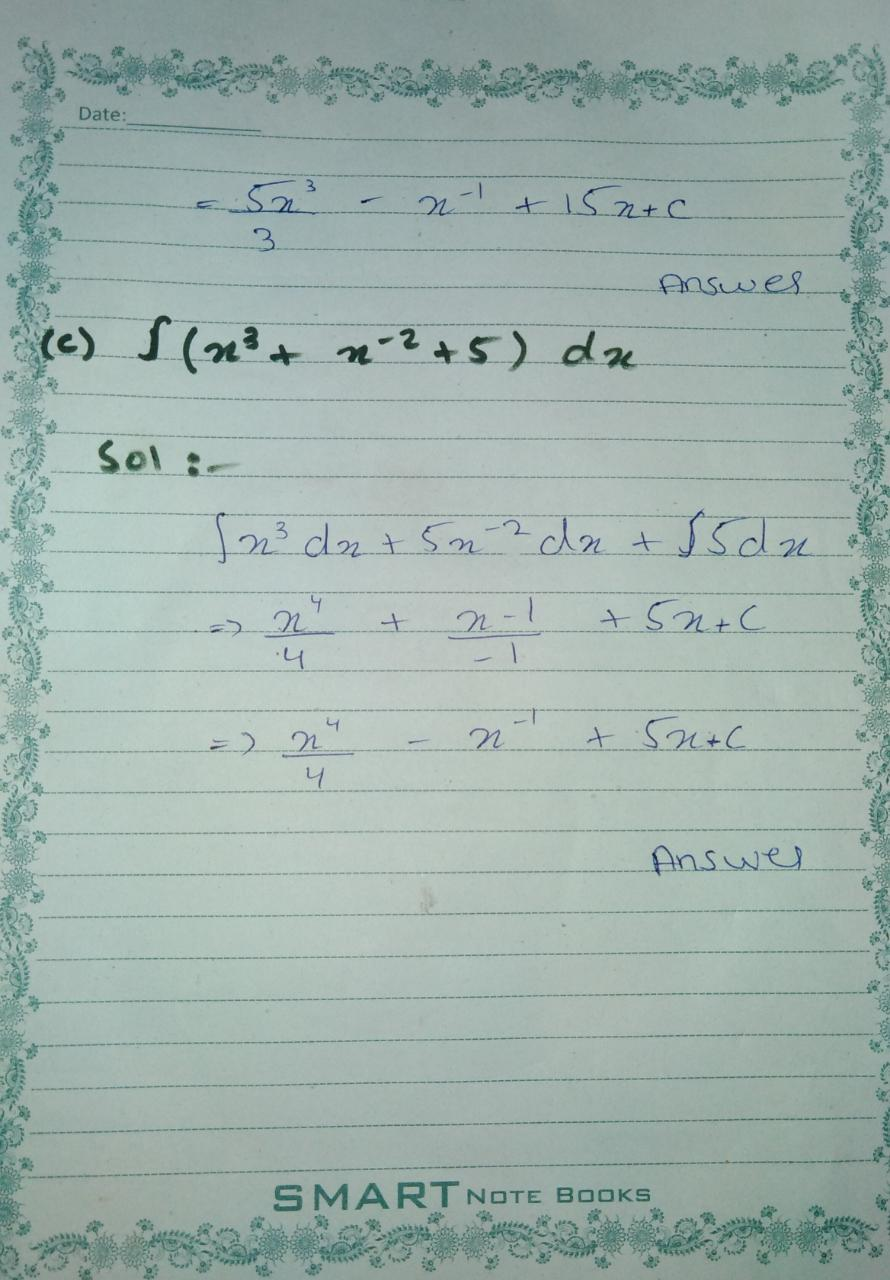 Date:
= 5x³/3 - x⁻¹ + 15x+c
Answer
(c) ∫(x³+ x⁻²+5) dx
Sol :-
∫x³dx + 5x⁻²dx + ∫5dx
=> x⁴/4 + x-1/-1 + 5x+c
=> x⁴/4 - x⁻¹ + 5x+c
Answer
SMART NOTE BOOKS